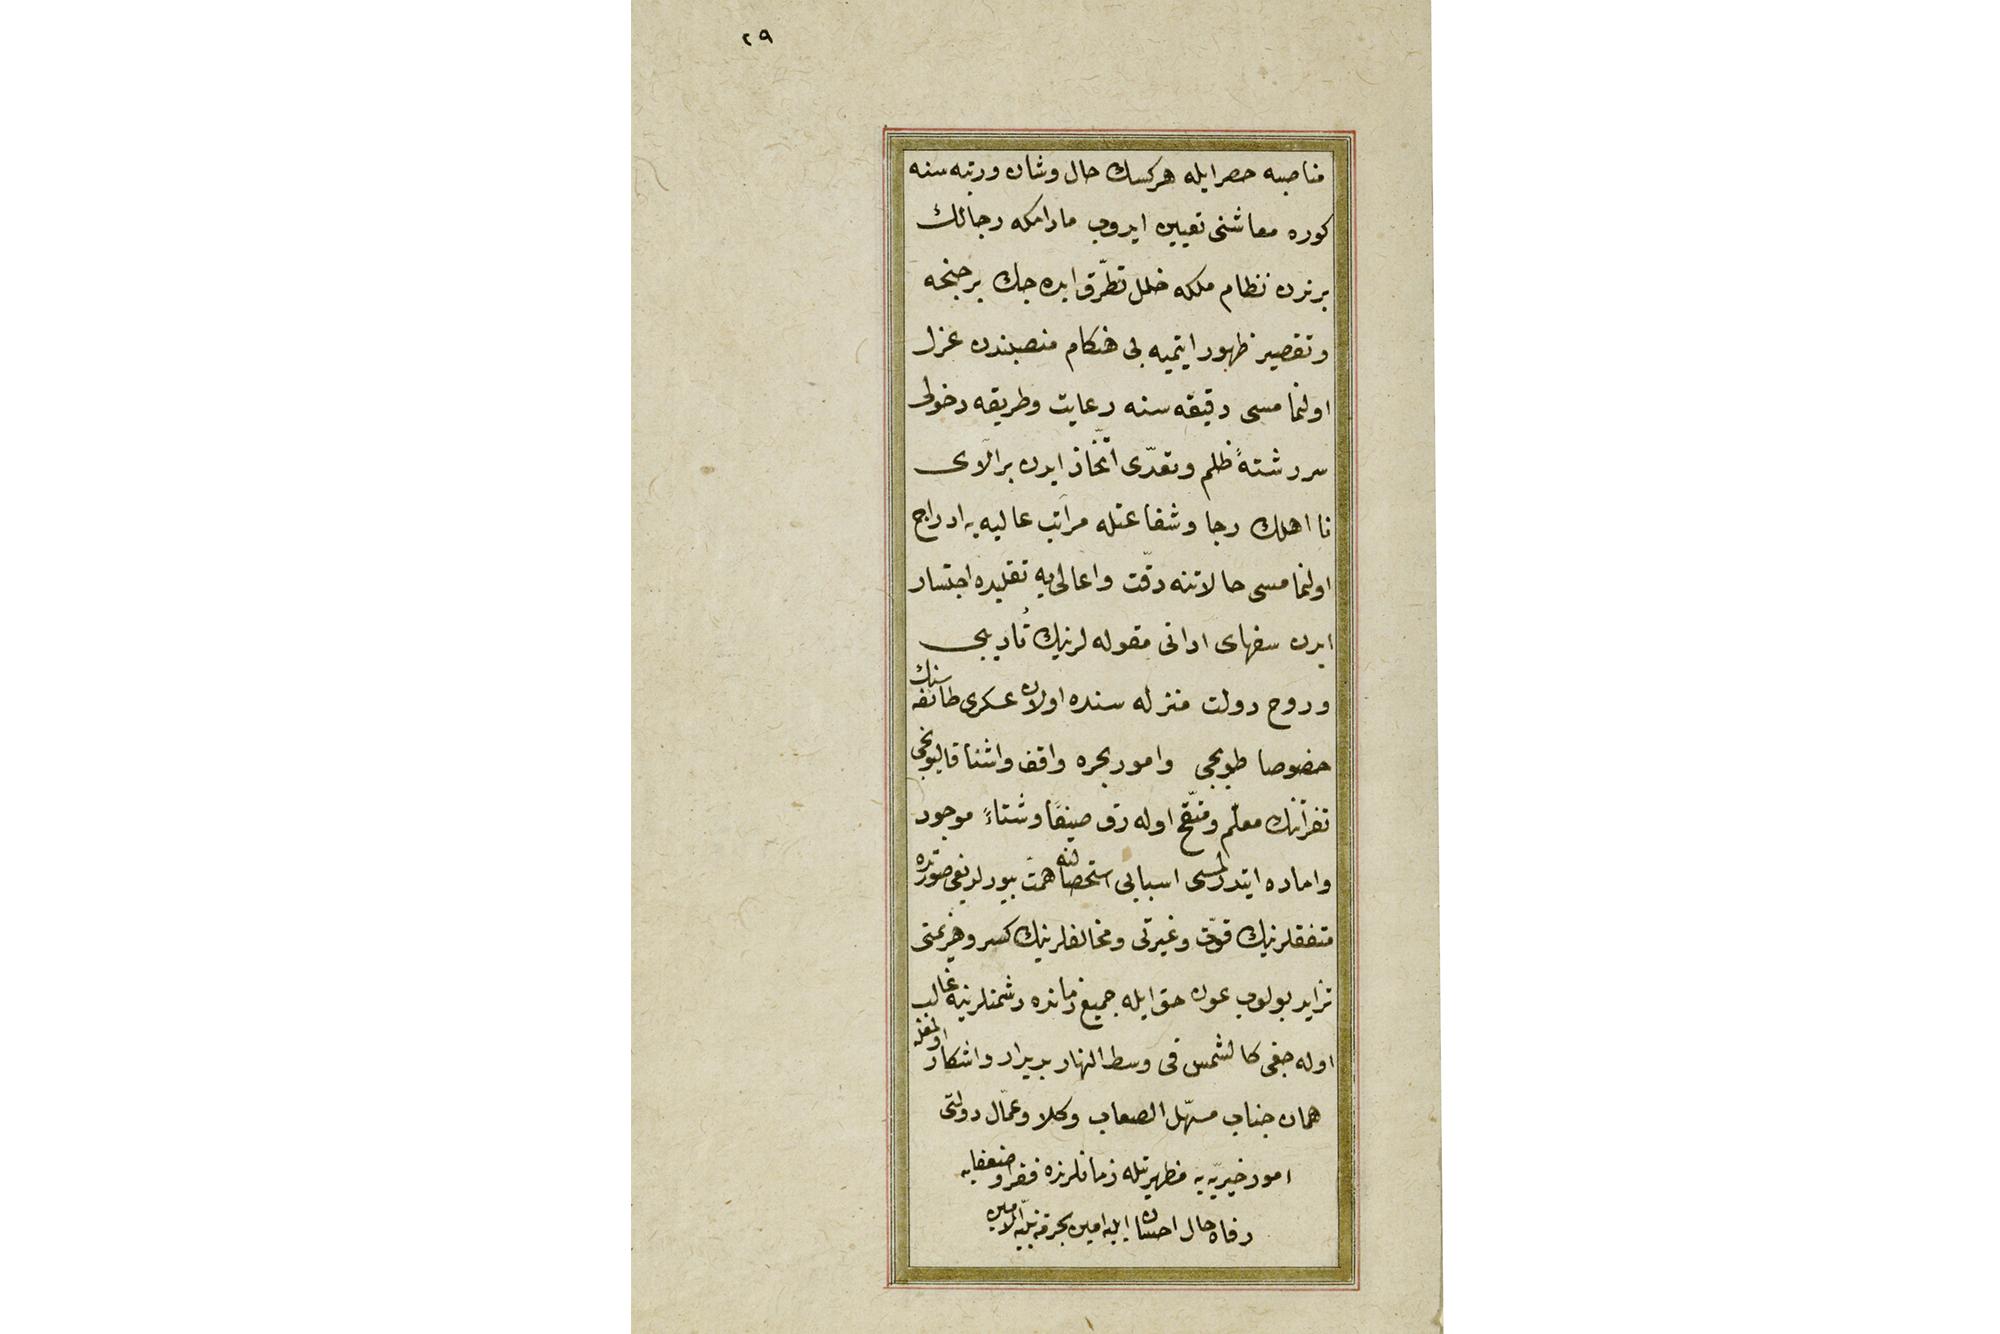 ٢٩
مناصبه حصر ایله هرکسك حال وشان ورتبه سنه
کوره معاشنی تعیین ایدوب مادامکه رجالك
برندن نظام ملکه خلل تطرّق ایده جك بر جنحه
وتقصیر ظهور ایتمیه بی هنکام منصبندن عزل
اولنمامسی دقیقه سنه رعایت وطریقه دخولی
سر رشتهٔ ظلم وتعدّی اتّخاذ ایدن بر آلای
نا اهلك رجا وشفاعتله مراتب عالیه یه ادراج
اولنمامسی حالاتنه دقّت واعالی یه تقلیده اجتسار
ایدن سفهای ادانی مقوله لرینك تأدیبی
وروح دولت منزله سنده اولان عسکری طائفه سنك
خصوصا طوپجی وامور بحره واقف واشنا قالیونجی
نفراتنك معلّم ومنقّح اوله رق صیفًا وشتاءً موجود
واماده ایتدرلمسی اسبابی استحصالنه همت بیورلدیغی صورتده
متفقلرینك قوّت وغیرتی ومخالفلرینك کسر وهزیمتی
تزاید بولوب عون حق ایله جمیع زمانده دشمنلرینه غالب
اوله جغی کالشمس فی وسط النهار بدیدار واشکار اولمغله
همان جناب مسهّل الصعاب وکلا وعمّال دولتی
امور خیریّه یه مظهریتله زمانلرنده فقرا وضعفایه
رفاه حال احسان ایلیه امین بحرمة نبیّه الامین